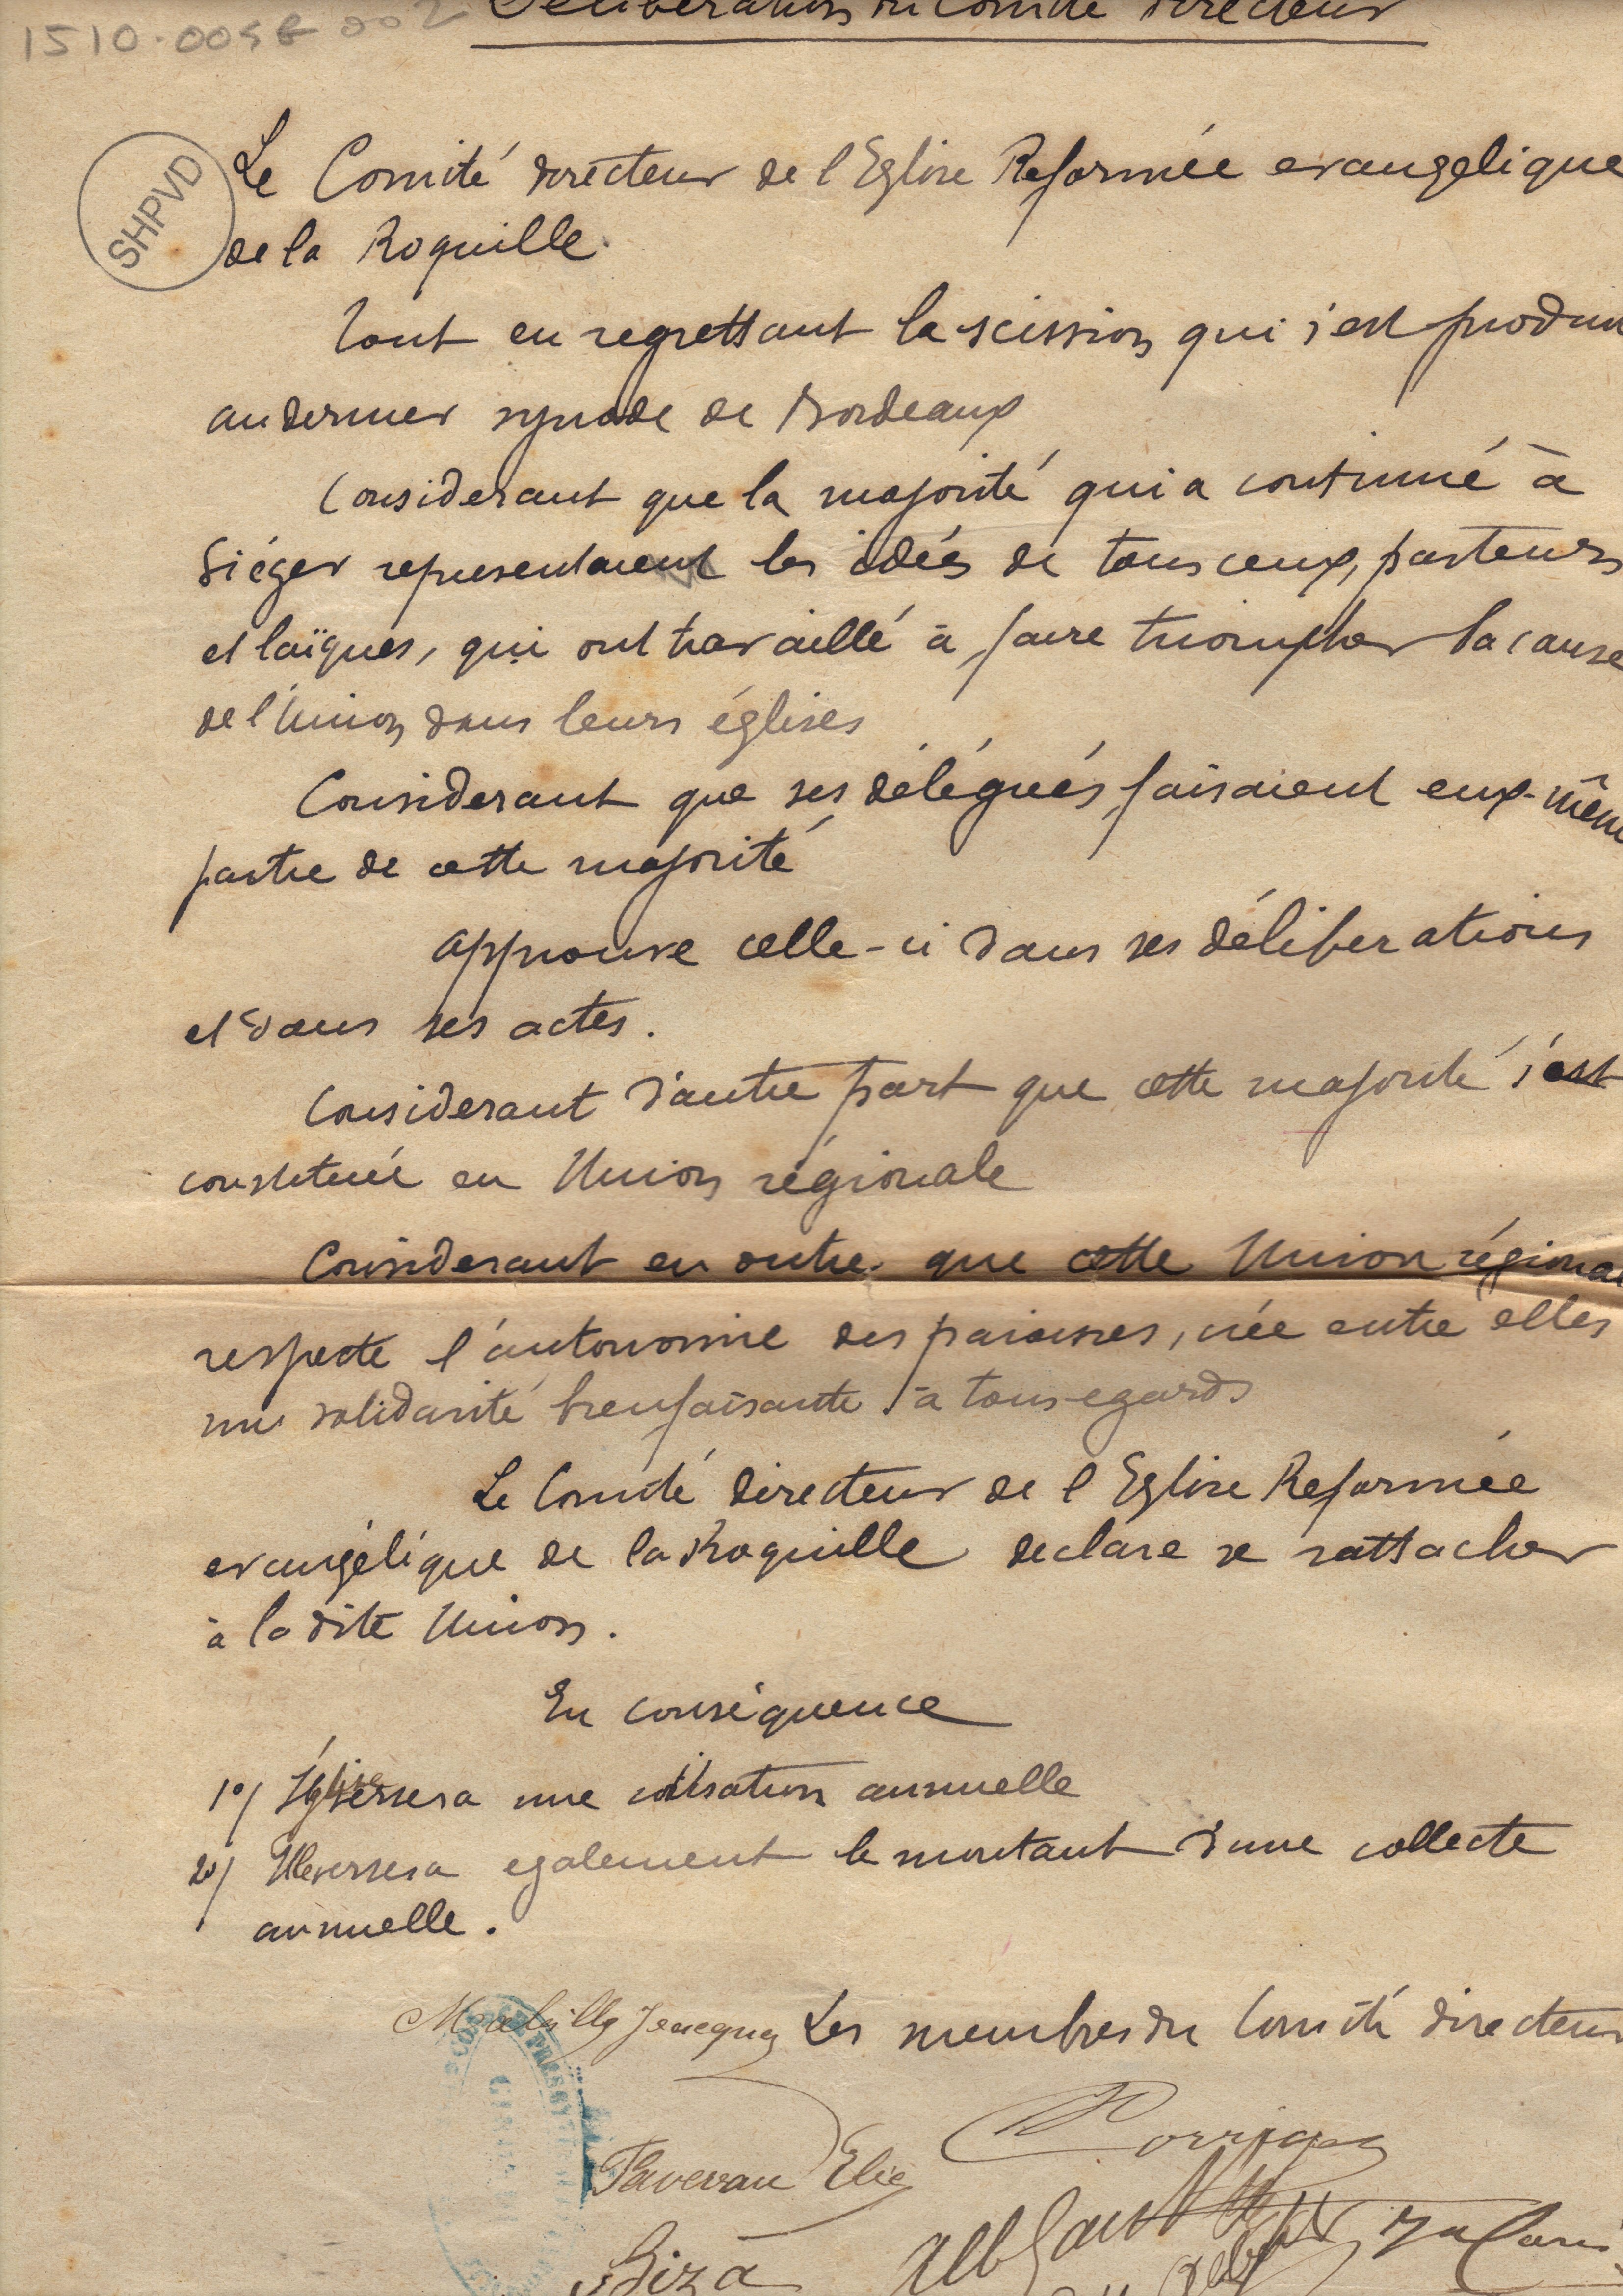 1510.005G 002
Délibération du Comité directeur
SHPVD
Le Comité directeur de l'Eglise Reformée evangélique
de la Roquille.
Tout en regrettant la scission qui s'est produi
au dernier synode de Bordeaux
Considerant que la majorité qui a continué à
Siéger representaient les idées de tous ceux, pasteurs
et laïques, qui ont travaillé à faire triompher la cause
de l'Union dans leurs églises
Considerant que ses délégués faisaient eux-même
partie de cette majorité
approuve celle-ci dans ses déliberations
et dans ses actes.
Considerant d'autre part que cette majorité s'est
constituée en Union régionale
Considerant en outre que cette Union régional
respecte l'autonomie des paroisses, crée entre elles
une solidarité bienfaisante à tous egards
Le Comité directeur de l'Eglise Reformée
evangélique de la Roquille declare se rattacher
à la dite Union.
En conséquence
1°/ versera une cotisation annuelle
2°/ versera egalement le montant d'une collecte
annuelle.
Les membres du Comité directeur
Elie